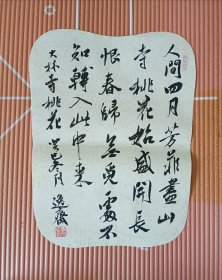 人間四月芳菲盡山
寺桃花始盛開長
恨春歸無覓處不
知轉入此中來
大林寺桃花 癸巳冬月 逸發